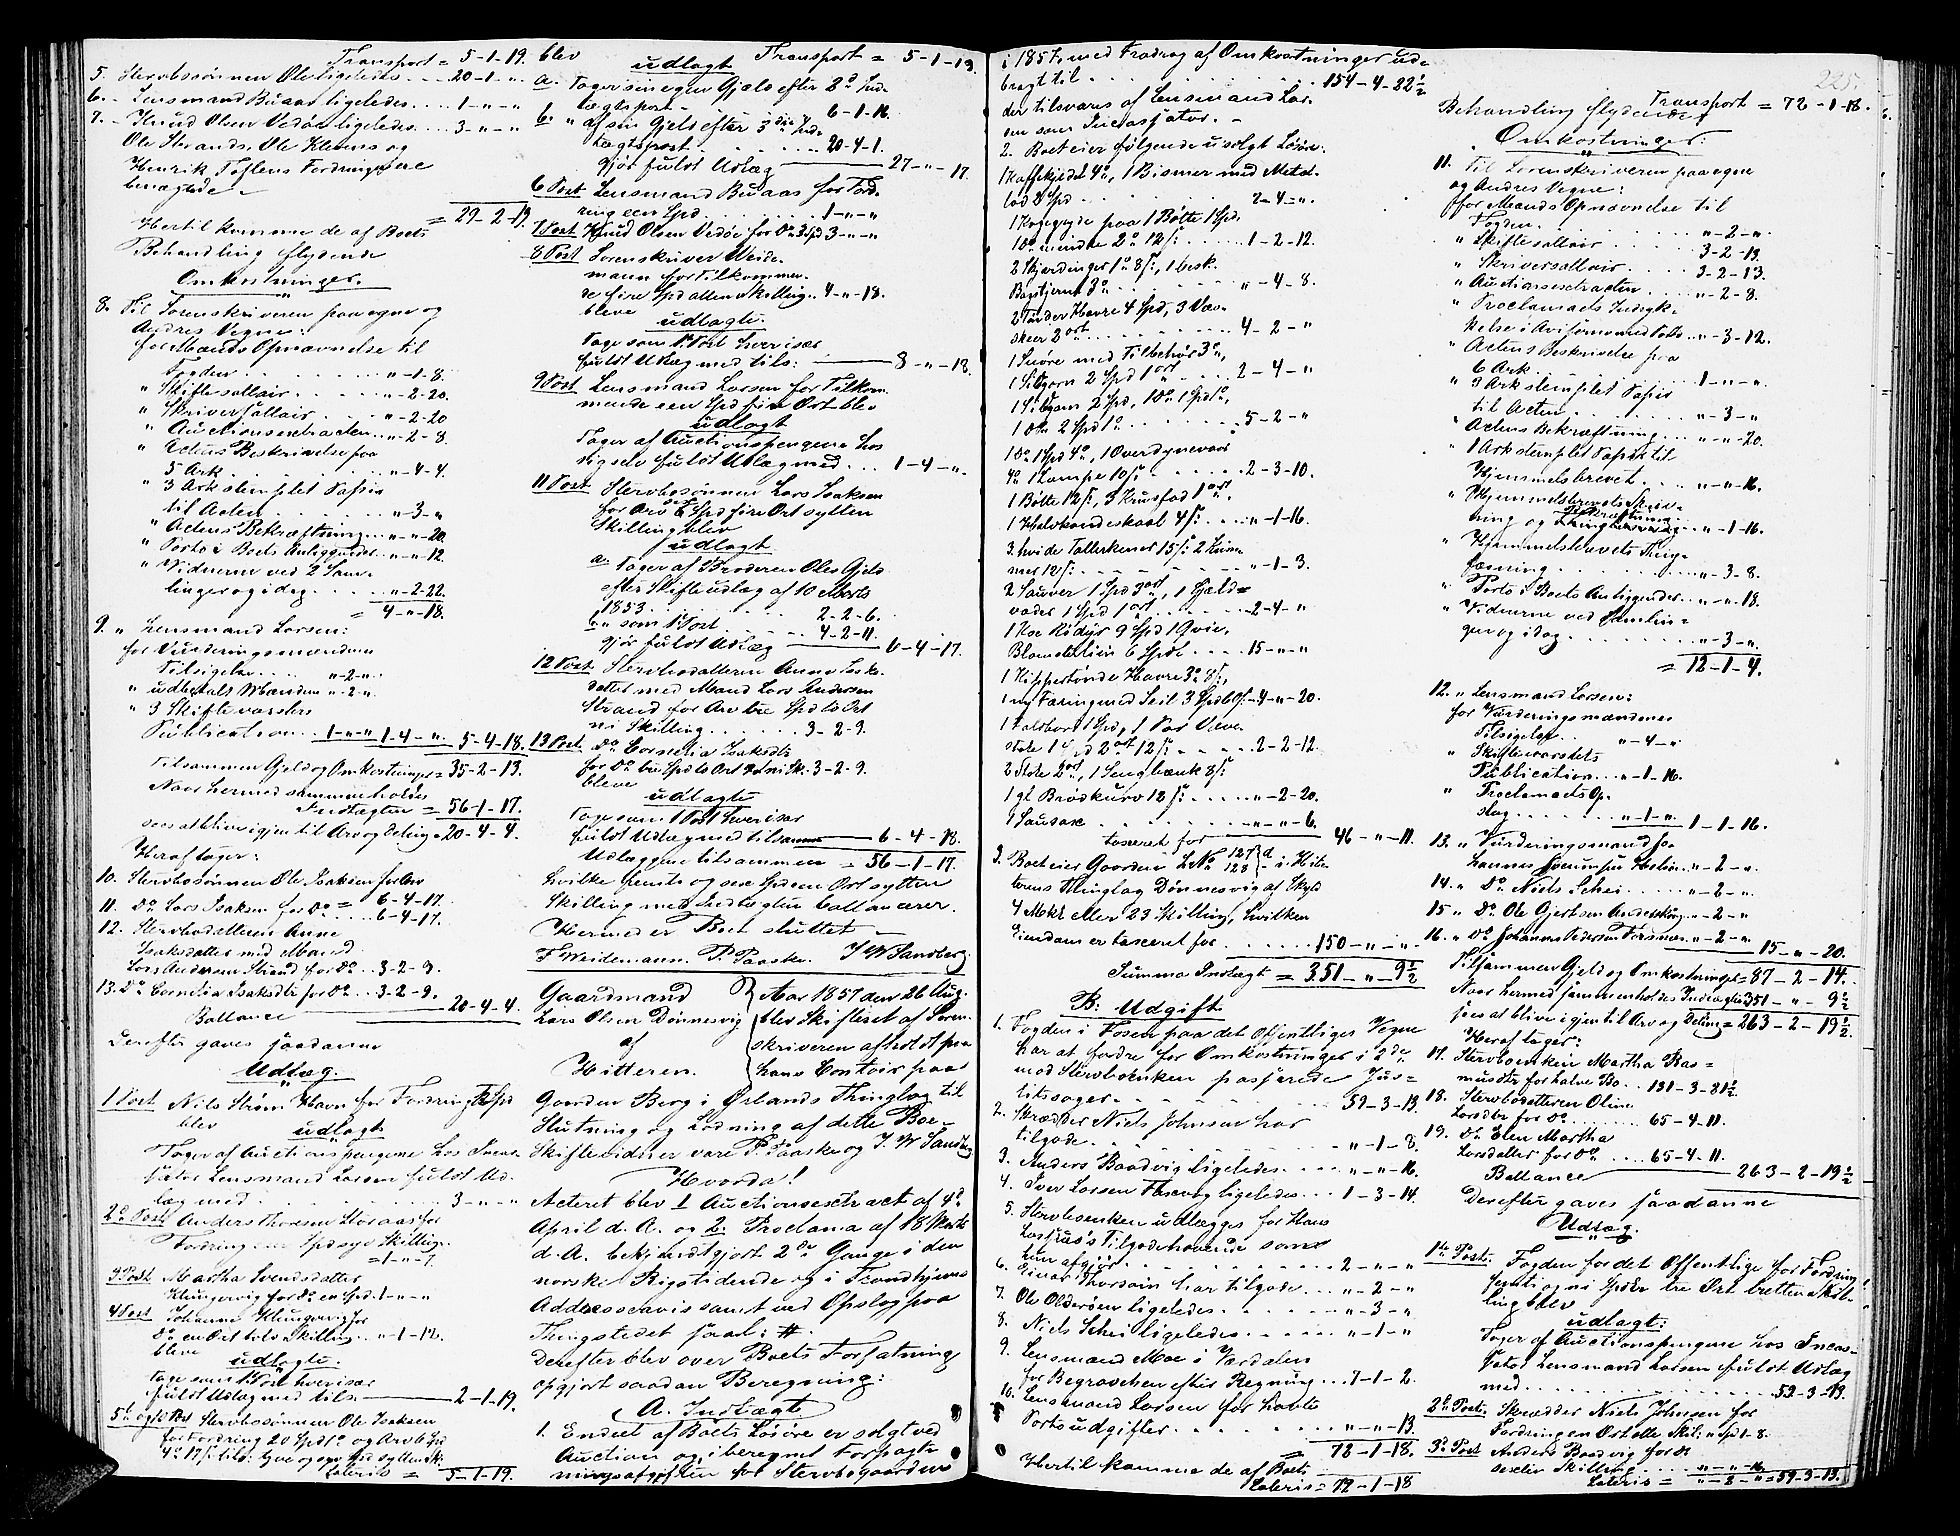 Transport = 5-1-19.
5. Sterbosønnen Ole ligeledes .... 20-1-"
6. - Lensmand Buaas ligeledes .... 1-"-"
7. - Knud Olsen Vedøe ligeledes .... 3-"-"
Ole Strands, Ole Klems og
Henrik Fordringer
benægtede.
= 29-2-19.
Hertil komme de af Boets
Behandling flydende
Omkostninger.
8. Til Sorenskriveren paa egne og
Andres Vegne:
for Mænds Opnævnelse til
Fogden ........ "-1-8.
" Skiftesallair .... "-2-20.
" Skriversallair .... "-2-20
" Auctionsextracten .. "-2-8.
" Actens Beskrivelse paa
5 Ark ........ "-4-4.
" 3 Ark stemplet Papir
til Acten ...... "-3-"
" Actens Bekræftning .. "-"-20.
" Porto i Boets Anliggender .. "-"-12.
" Vidnerne ved 2 Sam-
linger og idag .... "-2-22.
= 4-"-18.
9. " Lensmand Larsen:
for Vurderingsmændenes
Tilsigelse .... "-2-"
" udbetalt Mændene "-2-"
" 3 Skiftevarslers
Publication .. 1-"-" 1-4-". 5-4-18.
Tilsammen Gjeld og Omkostninger = 35-2-13.
Naar hermed sammenholdes
Indtægten = 56-1-17.
sees at blive igjen til Arv og Deling = 20-4-4.
Heraf tager:
10. Sterbosønnen Ole Isaksen for Arv
= 6-4-17.
11. Do Lars Isaksen for Do .... 6-4-17.
12. Sterbodatteren Anne
Isaksdatter med Mand
Lars Andersen Strand for Do .. 3-2-9.
13. Do Cornelia Isaksdtr for Do .. 3-2-9.
20-4-4.
Ballance
Derefter gaves saadanne
Udlæg.
1 Post Nils Strøm Havn for Fordring 3 Spd
blev udlagt
Tager af Auctionspengene hos Incas-
sator Lensmand Larsen fuldt Ud-
læg med ........ 3-"-"
2d Post Anders Thoresen for
Fordring een Spd syv Skilling.
= 1-"-7.
3 Post Martha Svendsdatter
Klungervig for Do en Spd. 1-"-"
4 Post Johannes Klungervig for
Do en Ort tolv Skilling .. "-1-12.
bleve
udlagte.
tage som 1 Post hver især
fuldt Udlæg med tils. 2-1-19.
5te og 10 Post Sterbosønnen Ole Isaksen
for Fordring 20 Spd 1o og Arv 6 Spd
4o 17 s tils. tyve og syv Spd sytten Sk.
Lateris = 5-1-19.
blev udlagt Transport = 5-1-19.
a. Tager sin egen Gjeld efter 2o Ind-
tægtspost. 6-1-16.
b. " af sin Gjeld efter 3die Ind-
tægtspost ...... 20-4-1.
gjør fuldt Udlæg 27-"-17.
6 Post Lensmand Buaas for Ford-
ring een Spd ...... 1-"-"
7 Post Knud Olsen Vedøe for Do 3 Spd 3-"-"
8 Post Sorenskriver Weide-
mann for Tilkommen-
de fire Spd atten Skilling .. 4-"-18.
bleve
udlagte.
Tage som 1 Post hver især
fuldt Udlæg med tils: 8-"-18.
9 Post Lensmand Larsen for Tilkom-
mende een Spd fire Ort blev
udlagt
Tager af Auctionspengene hos
sig selv fuldt Udlæg med ... 1-4-".
11 Post Sterbosønnen Lars Isaksen
for Arv 6 Spd fire Ort sytten
Skilling blev
udlagt
a. Tager af Broderen Oles Gjeld
efter Skifteudlæg af 10 Marts
1853 ........ 2-2-6.
b. " som 1 Post .... 4-2-11.
gjør fuldt Udlæg 6-4-17.
12 Post Sterbodatteren Anne Isaks-
datter med Mand Lars Andersen
Strand for Arv tre Spd to Ort
ni Skilling ...... 3-2-9.
13 Post Do Cornelia Isaksdtr
for Do tre Spd to Ort ni Sk. 3-2-9.
bleve
udlagte
Tage som 1 Post hver især
fuldt Udlæg med tilsammen 6-4-18.
Udlæggene tilsammen = 56-1-17.
hvilke femti og sex Spd een Ort sytten
Skilling med Indtægten ballancerer.
Hermed er Boet sluttet
F Weidemann. P. Paaske. J W Sandberg.
Gaardmand
Lars Olsen Dønnesvig
af
Hitteren.
Aar 1857 den 26 Aug.
blev Skifteret af Soren-
skriveren afholdt paa
hans Contoir paa
Gaarden Berg i Ørlands Thinglag til
Slutning og Lodning af dette Boe.
Skiftevidner vare P. Paaske og J. W Sandberg
Hvorda!
Acteret blev 1 Auctionsextract af 4d
April d. A. og 2. Proclama af 18 Marts
d. A. bekjendtgjort 2de Gange i den
norske Rigstidende og i Trondhjems
Addresseavis samt ved Opslag paa
Thingstedet saal: #.
Derefter blev over Boets Forfatning
opgjort saadan Beregning:
A. Indtægt
1. Endeel af Boets Løsøre er solgt ved
Auction og iberegnet Forpagt-
ningsafgiften for Sterbogaarden
i 1857, med Fradrag af Omkostninger ud-
bragt til ........ 154-4-22½
der tilsvares af Lensmand Lar-
sen som Incassator.
2. Boet eier følgende usolgt Løsøre:
1 Kaffekjedel 4o, 1 Bismer med Metal-
lod 2 Spd ........ 2-4-".
1 Kogegryde paa 1 Bøtte 1 Spd.
1 Do mindre 2o 12 s: ...... 1-2-12.
2 Skjæringer 1o 8 s, 1 besk.
Bagstjerne 3o ...... "-4-8.
2 Tønder Havre 4 Spd, 3 Væv-
skeer 2 ort ...... 4-2-"
1 Snøre med Tilbehør 3o,
1 Sildgarn 2 Spd 1 ort .... 2-4-"
1 Sildgarn 2 Spd, 1 Do 1 Spd 1o,
1 Do 2 Spd 1o ...... 5-2-"
1 Do 1 Spd 4o, 1 Overdynevaar
4o 1 Lampe 10 s ...... 2-3-10.
1 Bøtte 12 s, 3 Krusfad 1 ort.
1 Halvkandeskaal 4 s .... "-1-16.
3 hvide Tallerkener 15 s: 2 Trim-
mer 12 s: ...... "-1-3.
2 Sauer 1 Spd 3 ort, 1 Gjeld-
væder 1 Spd 1 ort ...... 2-4-"
1 Koe Rødsy 9 Spd 1 Qvie,
Blomsterlien 6 Spd .... 15-"-"
1 Kippertønde Havre 3o 8 s,
1 ny Færing med Seil 3 Spd .. 4-"-20.
1 Halsbor 1 Spd, 1 Par Væve-
stole 1 Spd 2 ort 12 s .... 2-2-12.
2 Stole 2 ort, 1 Sengbænk 8 s
1 gl Brødkurv 12 s: .... "-2-20.
1 Sausax "-"-6.
taxeret for 46-"-11.
3. Boet eier Gaarden L No 127/128 d i Hitte-
rens Thinglag Dønnesvig af Skyld
4 Mkl eller 23 Skilling, hvilken
Eiendom er taxeret for ...... 150-"-".
Summa Indtægt = 351-"-9½
B: Udgift
1. Fogden i Fosen paa det Offentliges Vegne
har at fordre for Omkostninger i 2de
mod Sterboenken passerede Jus-
titssager ........ 59-3-13.
2. Skrædder Niels Johnsen har
tilgode ........ "-1-8.
3. Anders Baadvig ligeledes ... "-"-16.
4. Iver Larsen ligeledes ... 1-3-14.
5. Sterboenken udlægges for Hans
Tilgodehavende som
hun afgjør ........ 2-"-"
6. Einar Thorsøin har tilgode .. "-2-"
7. Ole Olderøen ligeledes ...... "-3-"
8. Niels Schei ligeledes ...... "-1-"
9. Lensmand Moe i Værdalen
for Begravelsen efter Regning ... 7-1-2.
10. Lensmand Larsen for havte
Portoudgifter ........ "-"-13.
= 72-1-18.
Hertil komme de af Boets
Lateris = 72-1-18
225.
Transport = 72-1-18.
Behandling flydende
Omkostninger:
11. Til Sorenskriveren paa egne
og Andres Vegne:
for Mænds Opnævnelse til
Fogden ........ "-2-".
" Skiftesallair .... 3-2-13.
" Skriversallair .... 3-2-13.
" Auctionsextracten .. "-2-8.
" Proclamaets Indryk-
kelse i Aviserne med Porto .. "-3-12.
" Actens Beskrivelse paa
6 Ark ........ 1-"-".
" 3 Ark stemplet Papir
til Acten ...... "-3-"
" Actens Bekræftning ... "-"-20.
" 1 Ark stemplet Papir til
Hjemmelsbrevet .... "-"-16.
" Hjemmelsbrevets Skriv-
ning og Bekræftning .... "-1-16.
" Hjemmelsbrevets Thing-
læsning ........ "-3-8.
" Porto i Boets Anliggender .. "-"-18.
" Vidnerne ved Samlin-
ger og idag ...... "-3-".
= 12-1-4.
12. " Lensmand Larsen:
for Vurderingsmændenes
Tilsigelse .. "-4-"
" Skiftevarslets
Publication ... "-1-16.
" Proclamaets Op-
slag ...... "-1-". 1-1-16.
13. " Vurderingsmand
Hannes "-2-".
14. " Do Niels Schei .... "-2-".
15 " Do Ole Gjertsen "-2-"
16. " Do Johannes Pedersen "-2-".
15-"-20.
Tilsammen Gjeld og Omkostninger = 87-2-14.
Naar hermed sammenholdes Indtægten 351-"-9½
sees at blive igjen til Arv og Deling = 263-2-19½
Heraf tager:
17. Sterboenken Martha Ras-
musdtr for halve Bo .. 131-3-21½
18. Sterbodatteren Oline
Larsdtr for Do .... 65-4-11.
19. Do Elen Martha
Larsdatter for Do .... 65-4-11.
Ballance 263-2-19½
Derefter gaves saadanne
Udlæg.
1te Post. Fogden for det Offentlige for Fordring
femti og ni Spd tre Ort tretten Skil-
ling blev
udlagt:
Tager af Auctionspengene hos Incas-
sator Lensmand Larsen fuldt Udlæg
med ........ 59-3-13.
2d Post. Skrædder Niels Johnsen for
Fordring en Ort otte Skil: "-1-8.
3d Post Anders Baadvig for Do
sexten Skilling .... "-"-16.
Lateris = "-2-" = 59-3-13.